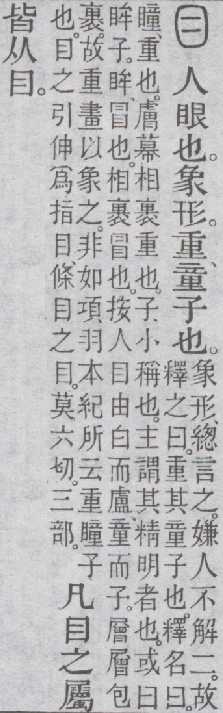 目人眼也。象形。重、童子也。
象形、總言之。嫌人不解二。故
釋之曰。重其童子也。釋名曰。
瞳、重也。膚幕相裹重也。子、小稱也。主謂其精明者也。或曰
眸子。眸、冒也。相裹冒也。按人目由白而盧、童而子。層層包
裹。故重畫以象之。非如項羽本紀所云重瞳子
也。目之引伸爲指目條目之目。莫六切。三部。
凡目之屬
皆从目。